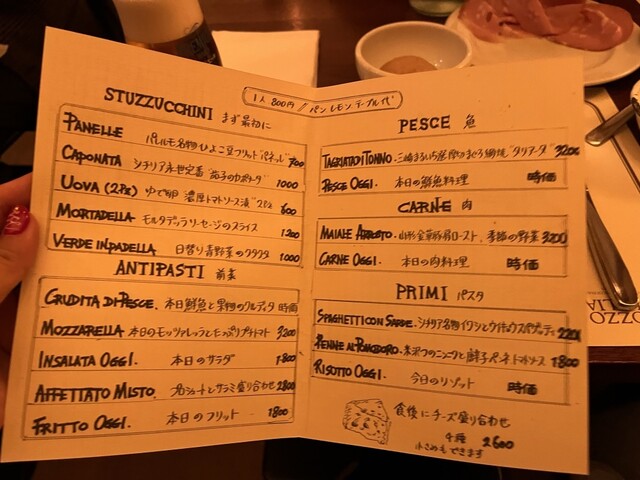 STUZZUCCHINI まず最初に
PANELLE パレルモ名物ひよこ豆フリット"パネッレ" 700
CAPONATA シチリア永世定番 "茄子のカポナータ" 1000
UOVA (2PZ) ゆで卵 濃厚トマトソース漬 "2Pz 600
MORTADELLA モルタデッラ ソーセージのスライス 1200
VERDE IN PADELLA 日替り青野菜のクタクタ 1000
ANTIPASTI 前菜
CRUDITA DI PESCE. 本日鮮魚と果物のクルディタ 時価
MOZZARELLA 本日のモッツァレッラとたっぷりプチトマト 3200
INSALATA OGGI. 本日のサラダ 1800
AFFETTATO MISTO. プロシュートとサラミ盛り合わせ 2800
FRITTO OGGI. 本日のフリット 1800
1人 800円 // パン レモン テーブル代
PESCE 魚
TAGRIATA DI TONNO. 三崎まるいち の まぐろ 網焼 "タリアータ" 3200
PESCE OGGI. 本日の鮮魚料理 時価
CARNE 肉
MAIALE ARROSTO. 山形金華豚肩ロースト、季節の野菜 3200
CARNE OGGI. 本日の肉料理 時価
PRIMI パスタ
SPAGHETTI CON SARDE. シチリア名物イワシとウイキョウスパゲッティ 2200
PENNE AL POMODORO. ニンニクと トマトソース 1800
RISOTTO OGGI. 今日のリゾット 時価
食後にチーズ盛り合わせ
4種 2600
小さめもできます
OZZO
LIA